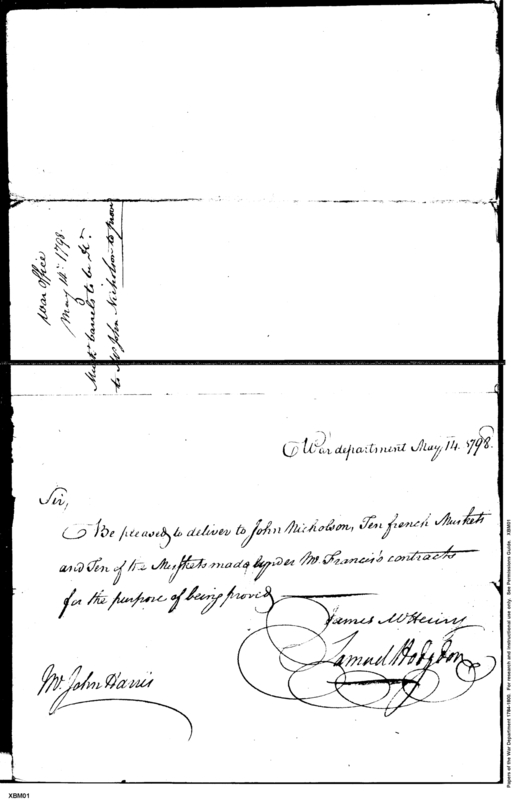 War Office
May 14th 1798.
Musk. barrels to be d.
to Mr John Nicholson to prove
War department May, 14. 1798.
Sir,
Be pleased to deliver to John Nicholson, Ten french Muskets
and Ten of the Muskets made under Mr. Francis's contracts
for the purpose of being proved
James McHenry
Samuel Hodgdon
Mr. John Harris
Papers of the War Department 1784-1800. For research and instructional use only. See Permissions Guide. XBM01
XBM01